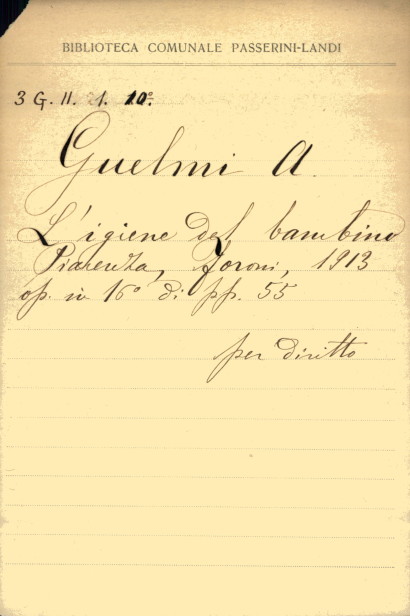 BIBLIOTECA COMUNALE PASSERINI-LANDI
3 G. II. 21. 10°.
Guelmi A.
L'igiene del bambino
Piacenza, Foroni, 1913
op. in 16° di pp. 55
per diritto